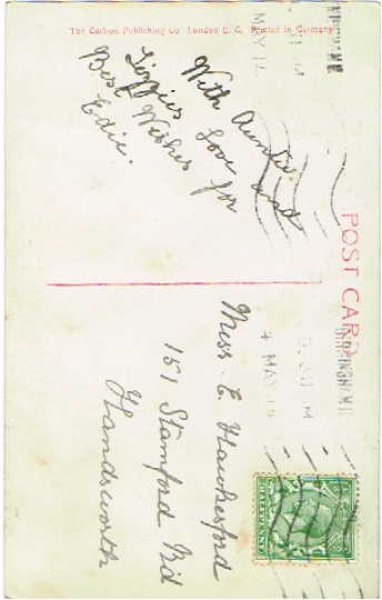 The Carlton Publishing Co. London E.C. Printed in Germany
POST CARD
With Auntie
Lizzies Love and
Best Wishes for
Edie.
Miss. E. Hawkesford
151 Stamford Rd
Handsworth
4 MAY 14